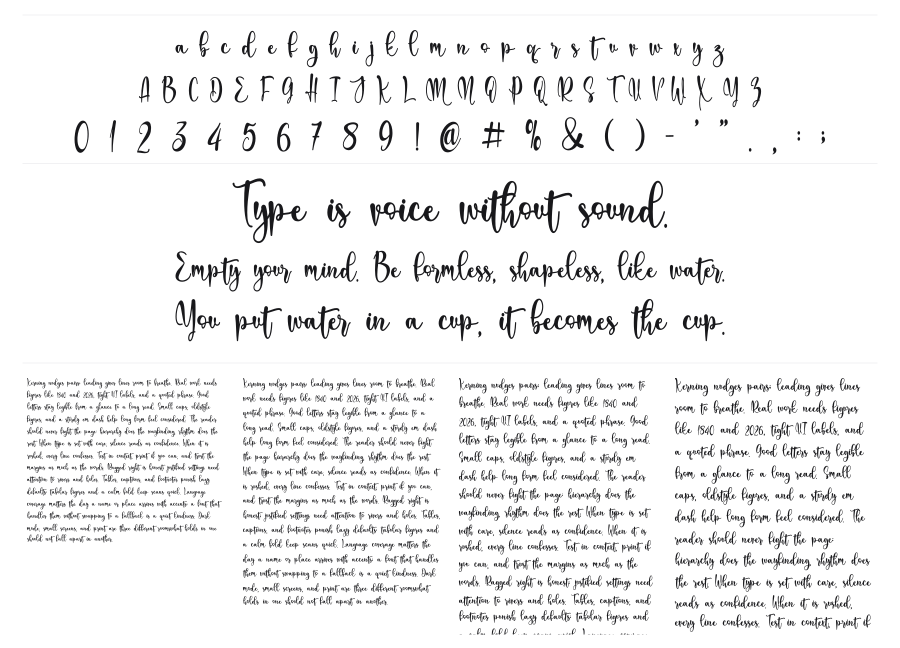 a b c d e f g h i j k l m n o p q r s t u v w x y z
A B C D E F G H I J K L M N O P Q R S T U V W X Y Z
0 1 2 3 4 5 6 7 8 9 ! @ # % & ( ) - ' " . , : ;
Type is voice without sound.
Empty your mind. Be formless, shapeless, like water.
You put water in a cup, it becomes the cup.
Kerning nudges pairs; leading gives lines room to breathe. Real work needs
figures like 1840 and 2026, tight UI labels, and a quoted phrase. Good
letters stay legible from a glance to a long read. Small caps, oldstyle
figures, and a sturdy em dash help long form feel considered. The reader
should never fight the page; hierarchy does the wayfinding rhythm does the
rest. When type is set with care, silence reads as confidence. When it is
rushed, every line confesses. Test in context, print if you can, and trust the
margins as much as the words. Ragged right is honest; justified settings need
attention to rivers and holes. Tables, captions, and footnotes punish lazy
defaults; tabular figures and a calm bold keep scans quiet. Language
coverage matters the day a name or place arrives with accents a font that
handles them without swapping to a fallback is a quiet kindness. Dark
mode, small screens, and print are three different rooms; what holds in one
should not fall apart in another.
Kerning nudges pairs; leading gives lines room to breathe. Real
work needs figures like 1840 and 2026, tight UI labels, and a
quoted phrase. Good letters stay legible from a glance to a
long read. Small caps, oldstyle figures, and a sturdy em dash
help long form feel considered. The reader should never fight
the page; hierarchy does the wayfinding rhythm does the rest.
When type is set with care, silence reads as confidence. When it
is rushed, every line confesses. Test in context, print if you can,
and trust the margins as much as the words. Ragged right is
honest; justified settings need attention to rivers and holes. Tables,
captions, and footnotes punish lazy defaults; tabular figures and
a calm bold keep scans quiet. Language coverage matters the
day a name or place arrives with accents a font that handles
them without swapping to a fallback is a quiet kindness. Dark
mode, small screens, and print are three different rooms; what
holds in one should not fall apart in another.
Kerning nudges pairs; leading gives lines room to
breathe. Real work needs figures like 1840 and
2026, tight UI labels, and a quoted phrase. Good
letters stay legible from a glance to a long read.
Small caps, oldstyle figures, and a sturdy em
dash help long form feel considered. The reader
should never fight the page; hierarchy does the
wayfinding rhythm does the rest. When type is set
with care, silence reads as confidence. When it is
rushed, every line confesses. Test in context, print if
you can, and trust the margins as much as the
words. Ragged right is honest; justified settings need
attention to rivers and holes. Tables, captions, and
footnotes punish lazy defaults; tabular figures and
Kerning nudges pairs; leading gives lines
room to breathe. Real work needs figures
like 1840 and 2026, tight UI labels, and
a quoted phrase. Good letters stay legible
from a glance to a long read. Small
caps, oldstyle figures, and a sturdy em
dash help long form feel considered. The
reader should never fight the page;
hierarchy does the wayfinding rhythm does
the rest. When type is set with care, silence
reads as confidence. When it is rushed,
every line confesses. Test in context, print if